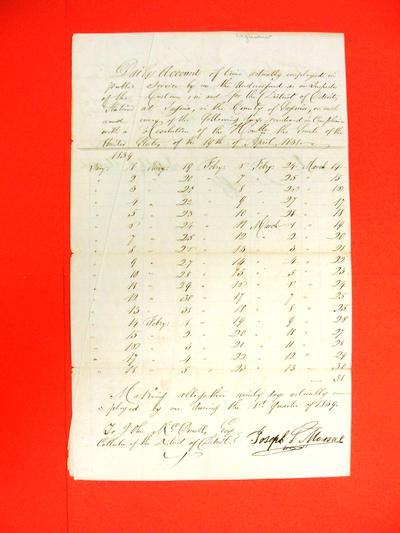 Daily Account of time actually employed in
Public Service by me the Undersigned as an Inspector
of the Customs in and for the District of Detroit
Station at in the County of on each
and every of the following days rendered in Compliance
with a Resolution of the Honble the Senate of the
United States of the 19th of April
1839
Jany: 1 Jany: 19 Feby: 5 Feby: 24 March 14
" 2 " 21 " 7 " 25 " 15
" 3 " 22 " 8 " 26 "
" 4 " 22 " 9 " 27 " 17
" 5 " 23 " 10 " 28 " 18
" " 24 " March 1 " 19
" 7 " 25 " 12 " 2 " 20
" 8 " " 13 " 3 " 21
" 9 " 27 " 14 " 4 " 22
" 10 " 28 " 15 " 5 " 23
" " 29 " " 8 " 24
" 12 " 30 " 17 " 7 " 25
" 13 " 31 " 18 " 8 "
" 14 Feby: 1 " 19 " 9 " 28
" 15 " 2 " 20 " 11 " 27
" " 3 " 21 " 11 " 28
" 17 " 4 " 22 " 12 " 29
" 18 " 5 " 23 " 13 " 30
31
Making altogether ninety days actually em
ployed by me during the 1st Quarter of 1839.
To John McDonell Esqr
Collector of the District of Detroit
Joseph